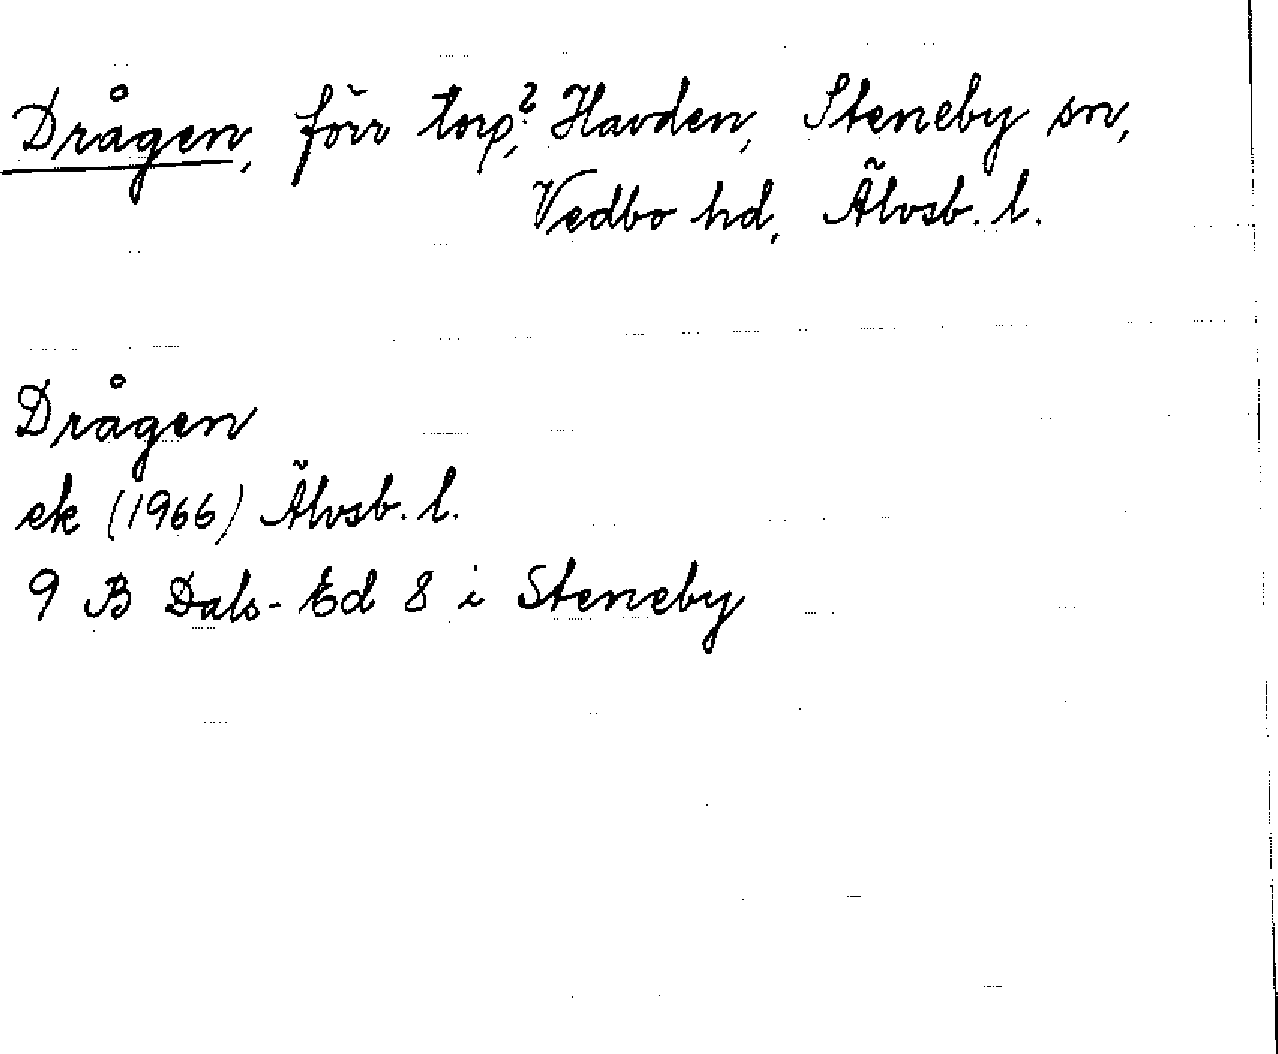 Drågen, förr torp?, Havden, Steneby sn,
Vedbo hd, Älvsb. l.
Drågen
ek (1966) Älvsb. l.
9 B Dals-Ed 8 i Steneby